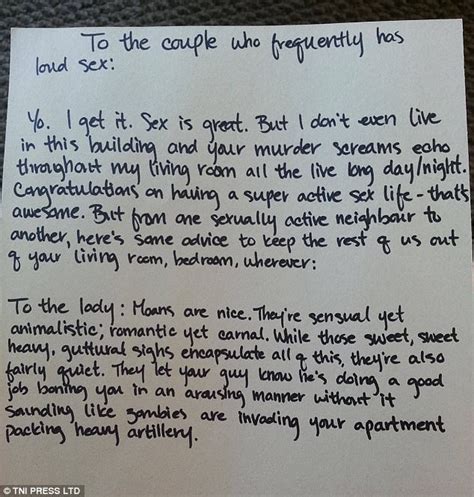 To the couple who frequently has
loud sex:
Yo. I get it. Sex is great. But I don't even live
in this building and your murder screams echo
throughout my living room all the live long day/night.
Congratulations on having a super active sex life - that's
awesome. But from one sexually active neighbour to
another, here's some advice to keep the rest of us out
of your living room, bedroom, wherever:
To the lady: Moans are nice. They're sensual yet
animalistic; romantic yet carnal. While those sweet, sweet
heavy, guttural sighs encapsulate all of this, they're also
fairly quiet. They let your guy know he's doing a good
job boning you in an arousing manner without it
sounding like zombies are invading your apartment
packing heavy artillery.
© TNI PRESS LTD